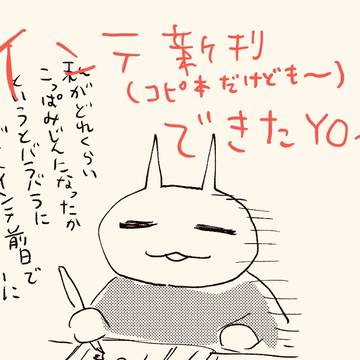 インテ新刊
(コピ本だけども〜)
できたYO
私がどれくらい
こっぱみじんになったか
というとバラバラに
インテ前日で